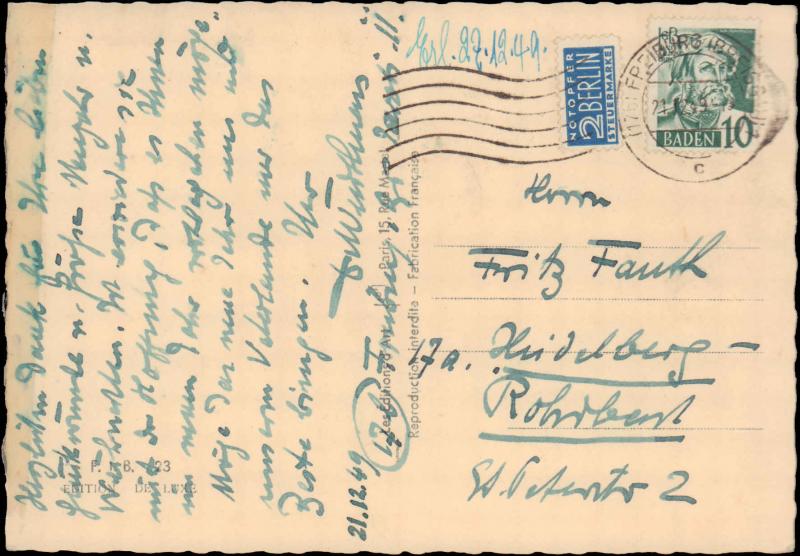 Herzlichen Dank für Ihre lieben
Glückwünsche u. Grüße zu Neujahr u.
Weihnachten. Ich erwidere sie
mit der Hoffnung, daß es Ihnen
im neuen Jahr wohlergehen möge.
Möge das neue Jahr uns und
unserm Vaterlande nur das
Beste bringen. Ihr
21.12.49
17b Freiburg
F. I. B. 23
EDITION DE LUXE
Les Editions d'Art
Paris, 15, Rue
Reproduction interdite - Fabrication Française
Erl. 27.12.49.
NOTOPFER
2 BERLIN
STEUERMARKE
(17b) FREIBURG (BREISGAU)
c
BADEN 10
Herrn
Fritz Fauth
17a. Heidelberg-
Rohrbach
St. Peterstr 2